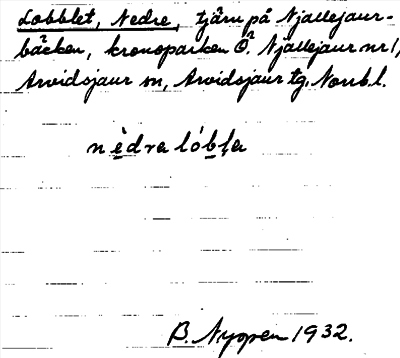 Lobblet, Nedre, tjärn på Njallejaur-
bäcken, kronoparken Ö. Njallejaur nr 1,
Arvidsjaur sn, Arvidsjaur tg, Norrb.l.
nèdra lóbḷa
B. Nyopen 1932.